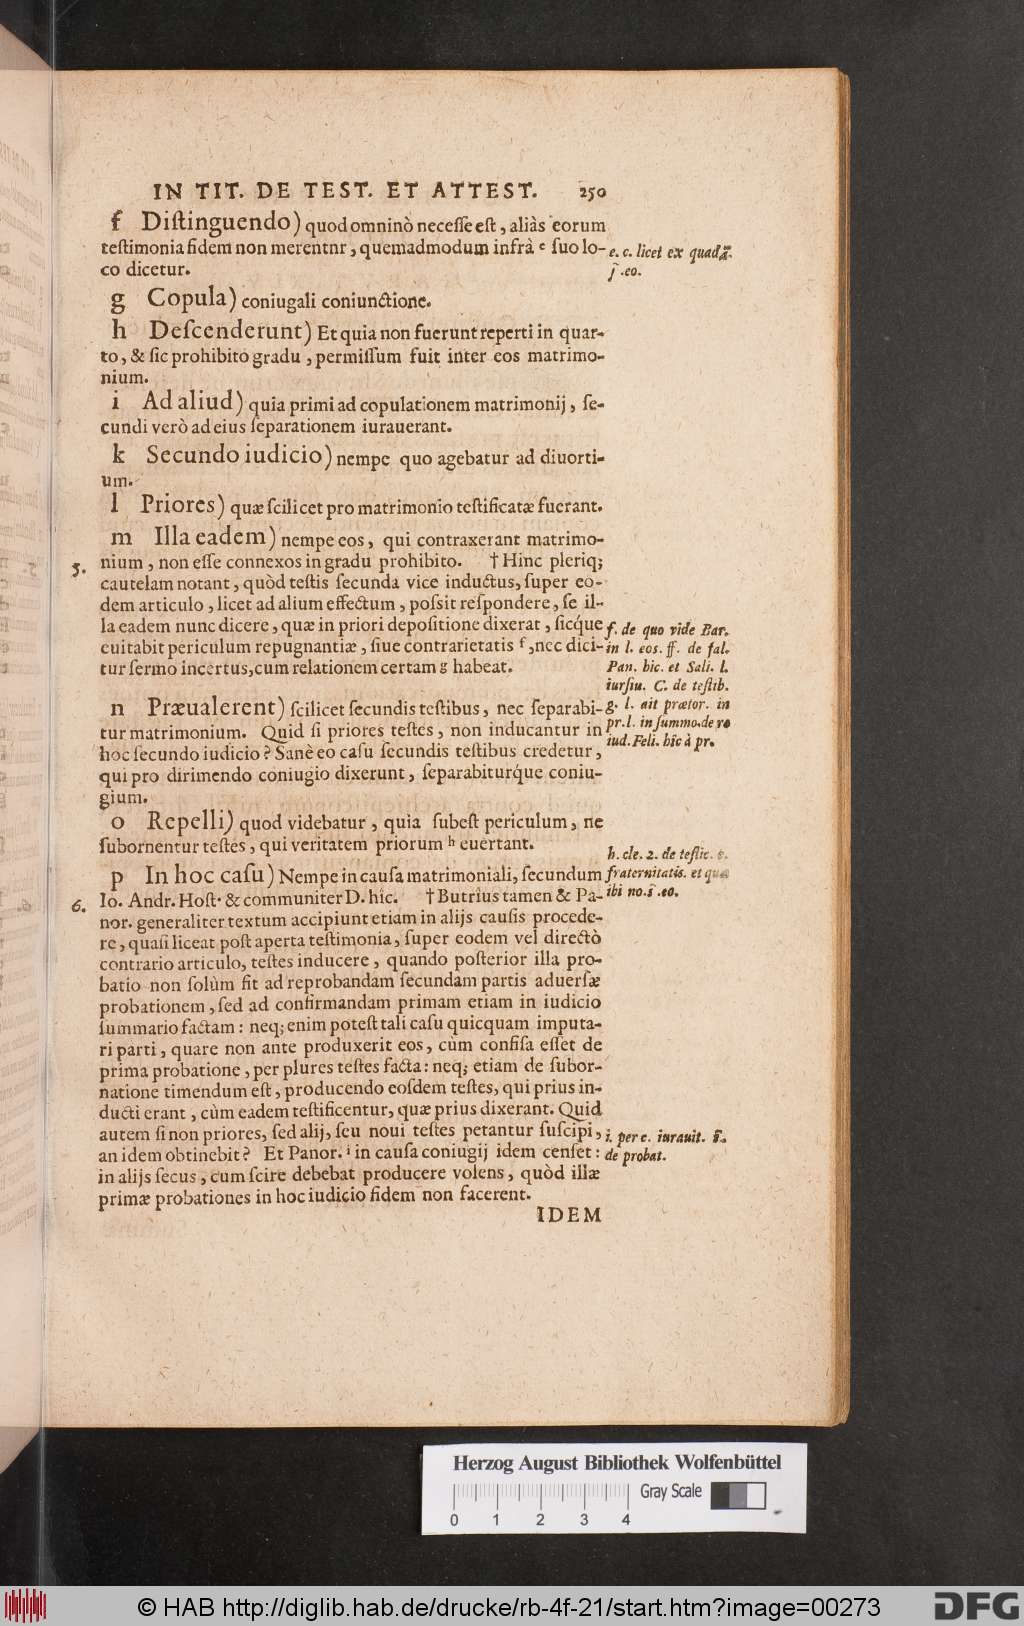 IN TIT. DE TEST. ET ATTEST. 250
f Diſtinguendo) quod omninò neceſſe eſt, aliàs eorum
teſtimonia fidem non merentnr, quemadmodum infrà e ſuo lo-
co dicetur.
g Copula) coniugali coniunctione.
h Deſcenderunt) Et quia non fuerunt reperti in quar-
to, & ſic prohibito gradu, permiſſum fuit inter eos matrimo-
nium.
i Ad aliud) quia primi ad copulationem matrimonij, ſe-
cundi verò ad eius ſeparationem iurauerant.
k Secundo iudicio) nempe quo agebatur ad diuorti-
um.
l Priores) quæ ſcilicet pro matrimonio teſtificatæ fuerant.
m Illa eadem) nempe eos, qui contraxerant matrimo-
nium, non eſſe connexos in gradu prohibito. † Hinc pleriq;
cautelam notant, quòd teſtis ſecunda vice inductus, ſuper eo-
dem articulo, licet ad alium effectum, poſsit reſpondere, ſe il-
la eadem nunc dicere, quæ in priori depoſitione dixerat, ſicq́ue
euitabit periculum repugnantiæ, ſiue contrarietatis f, nec dici-
tur ſermo incertus, cum relationem certam g habeat.
n Præualerent) ſcilicet ſecundis teſtibus, nec ſeparabi-
tur matrimonium. Quid ſi priores teſtes, non inducantur in
hoc ſecundo iudicio? Sanè eo caſu ſecundis teſtibus credetur,
qui pro dirimendo coniugio dixerunt, ſeparabiturq́ue coniu-
gium.
o Repelli) quod videbatur, quia ſubeſt periculum, ne
ſubornentur teſtes, qui veritatem priorum h euertant.
p In hoc caſu) Nempe in cauſa matrimoniali, ſecundum
Io. Andr. Hoſt. & communiter D. hîc. † Butrius tamen & Pa-
nor. generaliter textum accipiunt etiam in alijs cauſis procede-
re, quaſi liceat poſt aperta teſtimonia, ſuper eodem vel directò
contrario articulo, teſtes inducere, quando poſterior illa pro-
batio non ſolùm fit ad reprobandam ſecundam partis aduerſæ
probationem, ſed ad confirmandam primam etiam in iudicio
ſummario factam: neq; enim poteſt tali caſu quicquam imputa-
ri parti, quare non ante produxerit eos, cùm confiſa eſſet de
prima probatione, per plures teſtes facta: neq; etiam de ſubor-
natione timendum eſt, producendo eoſdem teſtes, qui prius in-
ducti erant, cùm eadem teſtificentur, quæ prius dixerant. Quid
autem ſi non priores, ſed alij, ſeu noui teſtes petantur ſuſcipi,
an idem obtinebit? Et Panor. i in cauſa coniugij idem cenſet:
in alijs ſecus, cum ſcire debebat producere volens, quòd illæ
primæ probationes in hoc iudicio fidem non facerent.
IDEM
5.
6.
e. c. licet ex quadã.
j̃.eo.
f. de quo vide Bar.
in l. eos. ff. de fal.
Pan. hic. et Sali. l.
iurſiu. C. de teſtib.
g. l. ait prætor. in
pr. l. in ſummo. de re
iud. Feli. hîc à pr.
h. cle. 2. de teſtic. c.
fraternitatis. et quæ
ibi no. ſ̃.eo.
i. per c. iurauit. ſ̃.
de probat.
Herzog August Bibliothek Wolfenbüttel
Gray Scale
0 1 2 3 4
© HAB http://diglib.hab.de/drucke/rb-4f-21/start.htm?image=00273
DFG